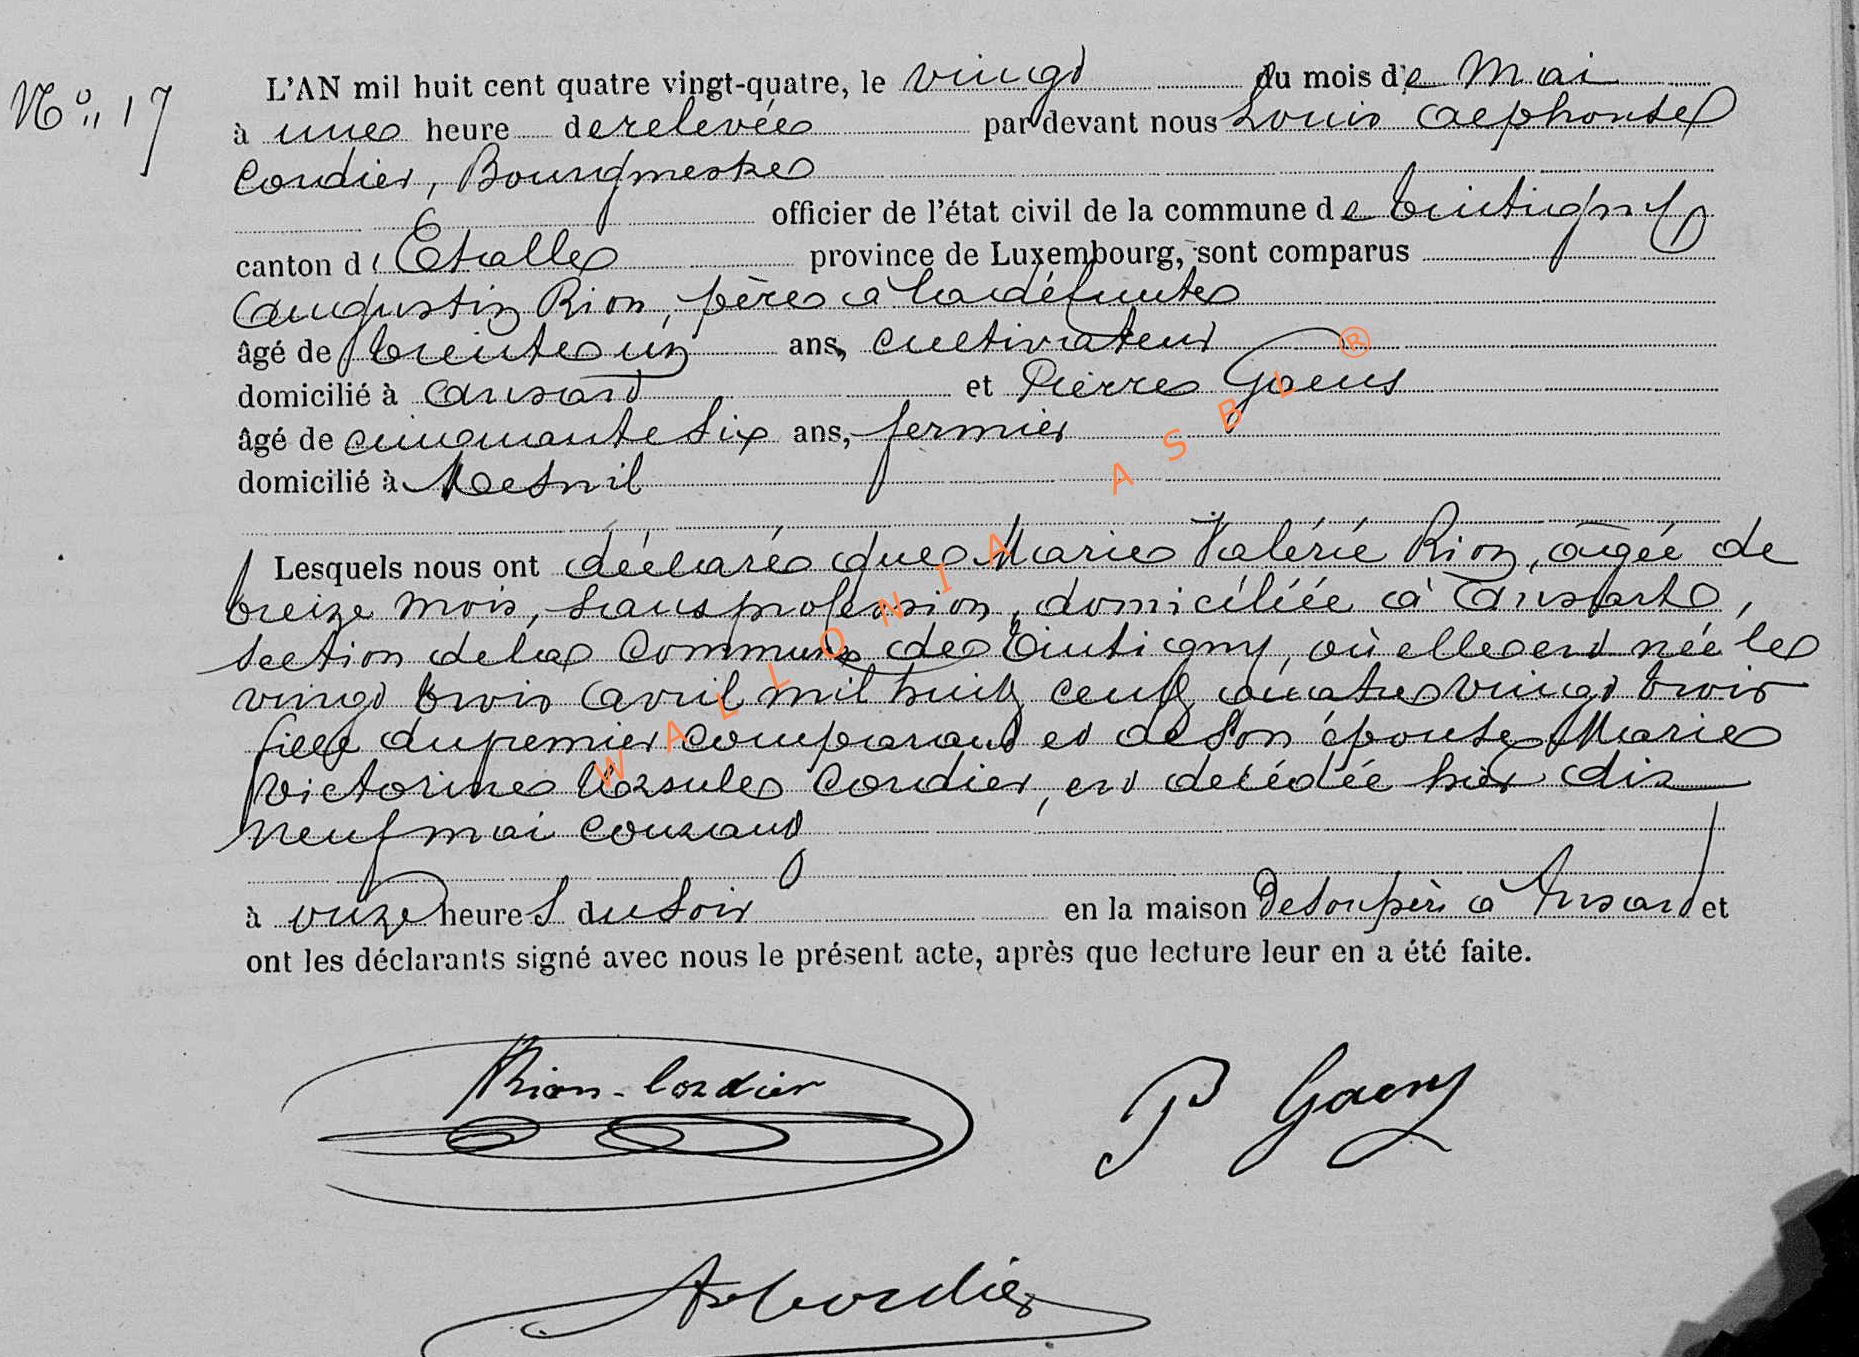 N° 17
L'AN mil huit cent quatre vingt-quatre, le vingt du mois de Mai
à une heure de relevée par devant nous Louis Alphonse
Cordier, Bourgmestre
officier de l'état civil de la commune de Tintigny
canton d'Etalle province de Luxembourg, sont comparus
Augustin Rion, père à la défunte
âgé de trente un ans, cultivateur
domicilié à Ansart et Pierre Goens
âgé de cinquante six ans, fermier
domicilié à Mesnil
Lesquels nous ont déclaré que Marie Valérie Rion, âgée de
treize mois, sans profession, domiciliée à Ansart,
section de la Commune de Tintigny, où elle est née le
vingt trois Avril mil huit cent quatre vingt trois
fille du premier comparant et de son épouse Marie
Victorine Ursule Cordier, est décédée hier dix
neuf mai courant
à onze heures du soir en la maison de son père à Ansart et
ont les déclarants signé avec nous le présent acte, après que lecture leur en a été faite.
Rion-Cordier
P Goens
A Cordier
WALLONIA ASBL ®